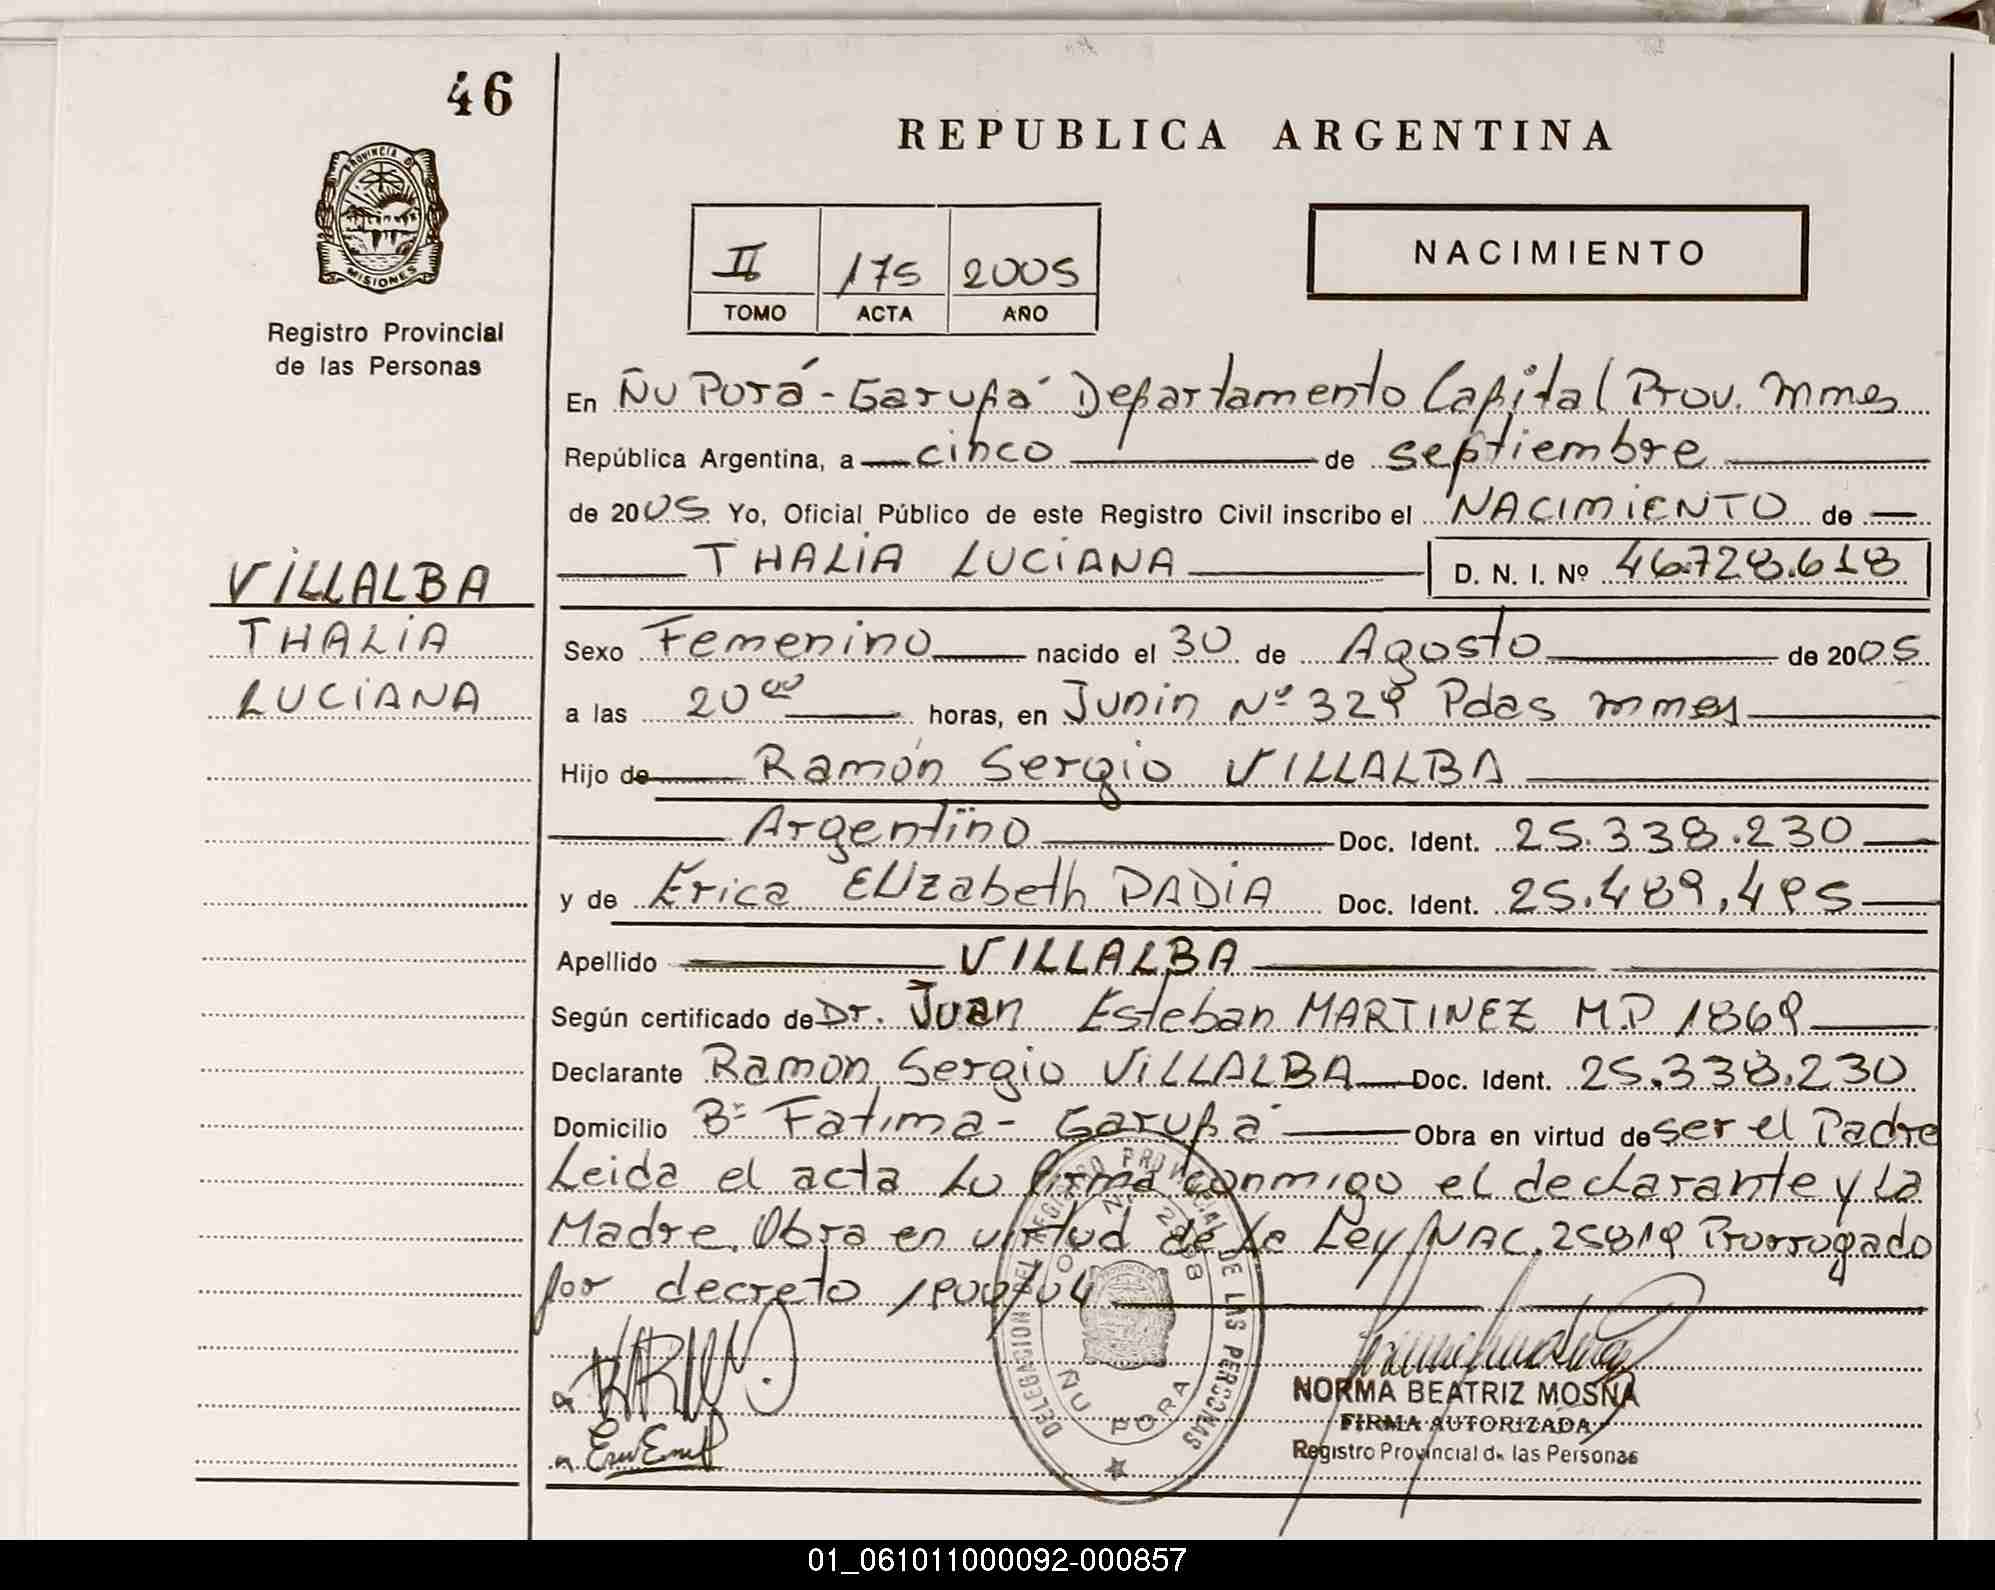 46
REPUBLICA ARGENTINA
PROVINCIA DE
MISIONES
Registro Provincial
de las Personas
II 175 2005
TOMO ACTA AÑO
NACIMIENTO
En Ñu Porá - Garupá Departamento Capital Prov. Mnes
República Argentina, a cinco de septiembre
de 2005 Yo, Oficial Público de este Registro Civil inscribo el NACIMIENTO de
THALIA LUCIANA D. N. I. Nº 46.728.618
VILLALBA
THALIA
LUCIANA
Sexo Femenino nacido el 30 de Agosto de 2005
a las 20 00 horas, en Junin Nº 329 Pdas Mnes
Hijo de Ramón Sergio VILLALBA
Argentino Doc. Ident. 25.338.230
y de Erica Elizabeth PADIA Doc. Ident. 25.489.495
Apellido VILLALBA
Según certificado de Dr. Juan Esteban MARTINEZ M.P 1869
Declarante Ramon Sergio VILLALBA Doc. Ident. 25.338.230
Domicilio Bº Fatima - Garupá Obra en virtud de ser el Padre
Leida el acta Lo firma conmigo el declarante y La
Madre. Obra en virtud de La Ley NAC. 25819 Prorrogado
por decreto 1900/04
DELEGACION DEL REGISTRO PROVINCIAL DE LAS PERSONAS
ÑU PORA
NORMA BEATRIZ MOSNA
FIRMA AUTORIZADA
Registro Provincial de las Personas
01_061011000092-000857